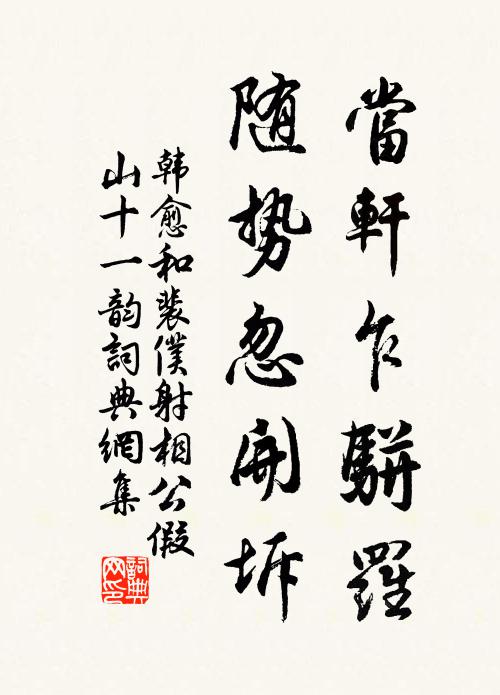 當軒乍駢羅
随勢忽開坼
韩愈和裴僕射相公假
山十一韵詞典網集
詞典网印